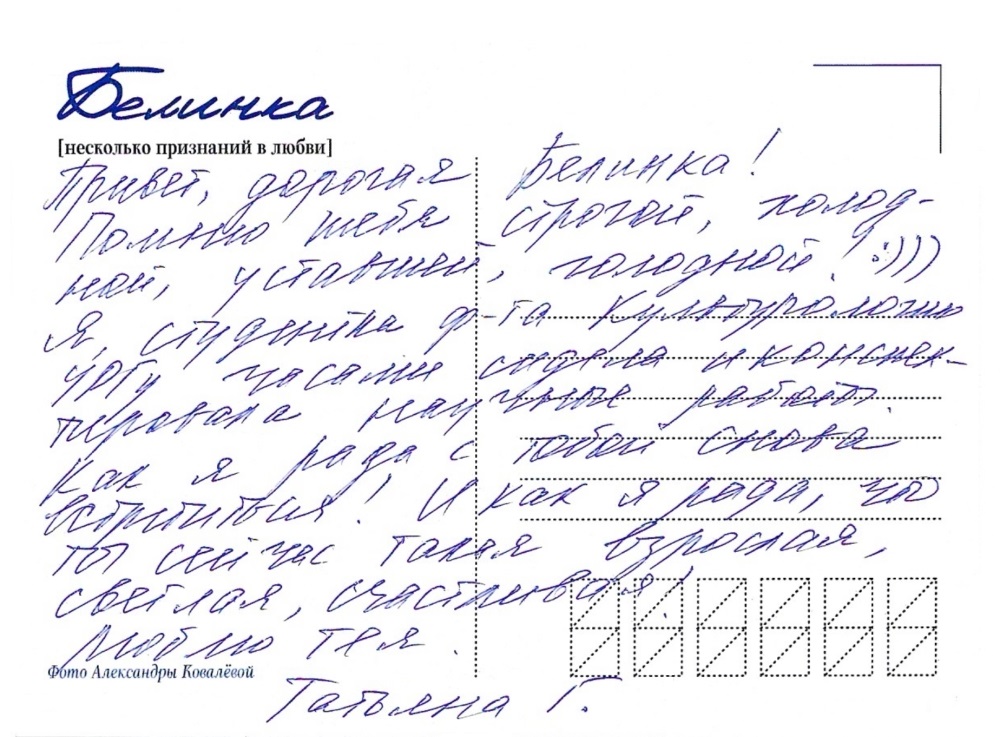 Белинка
[несколько признаний в любви]
Привет, дорогая Белинка!
Помню тебя строгой, холод-
ной, уставшей, голодной! :))))
Я, студентка ф-та культурологии
УрГУ часами сидела и конспек-
тировала научные работы.
Как я рада с тобой снова
встретиться! И как я рада, что
ты сейчас такая взрослая,
светлая, счастливая!
Люблю тя.
Фото Александры Ковалёвой
Татьяна Г.